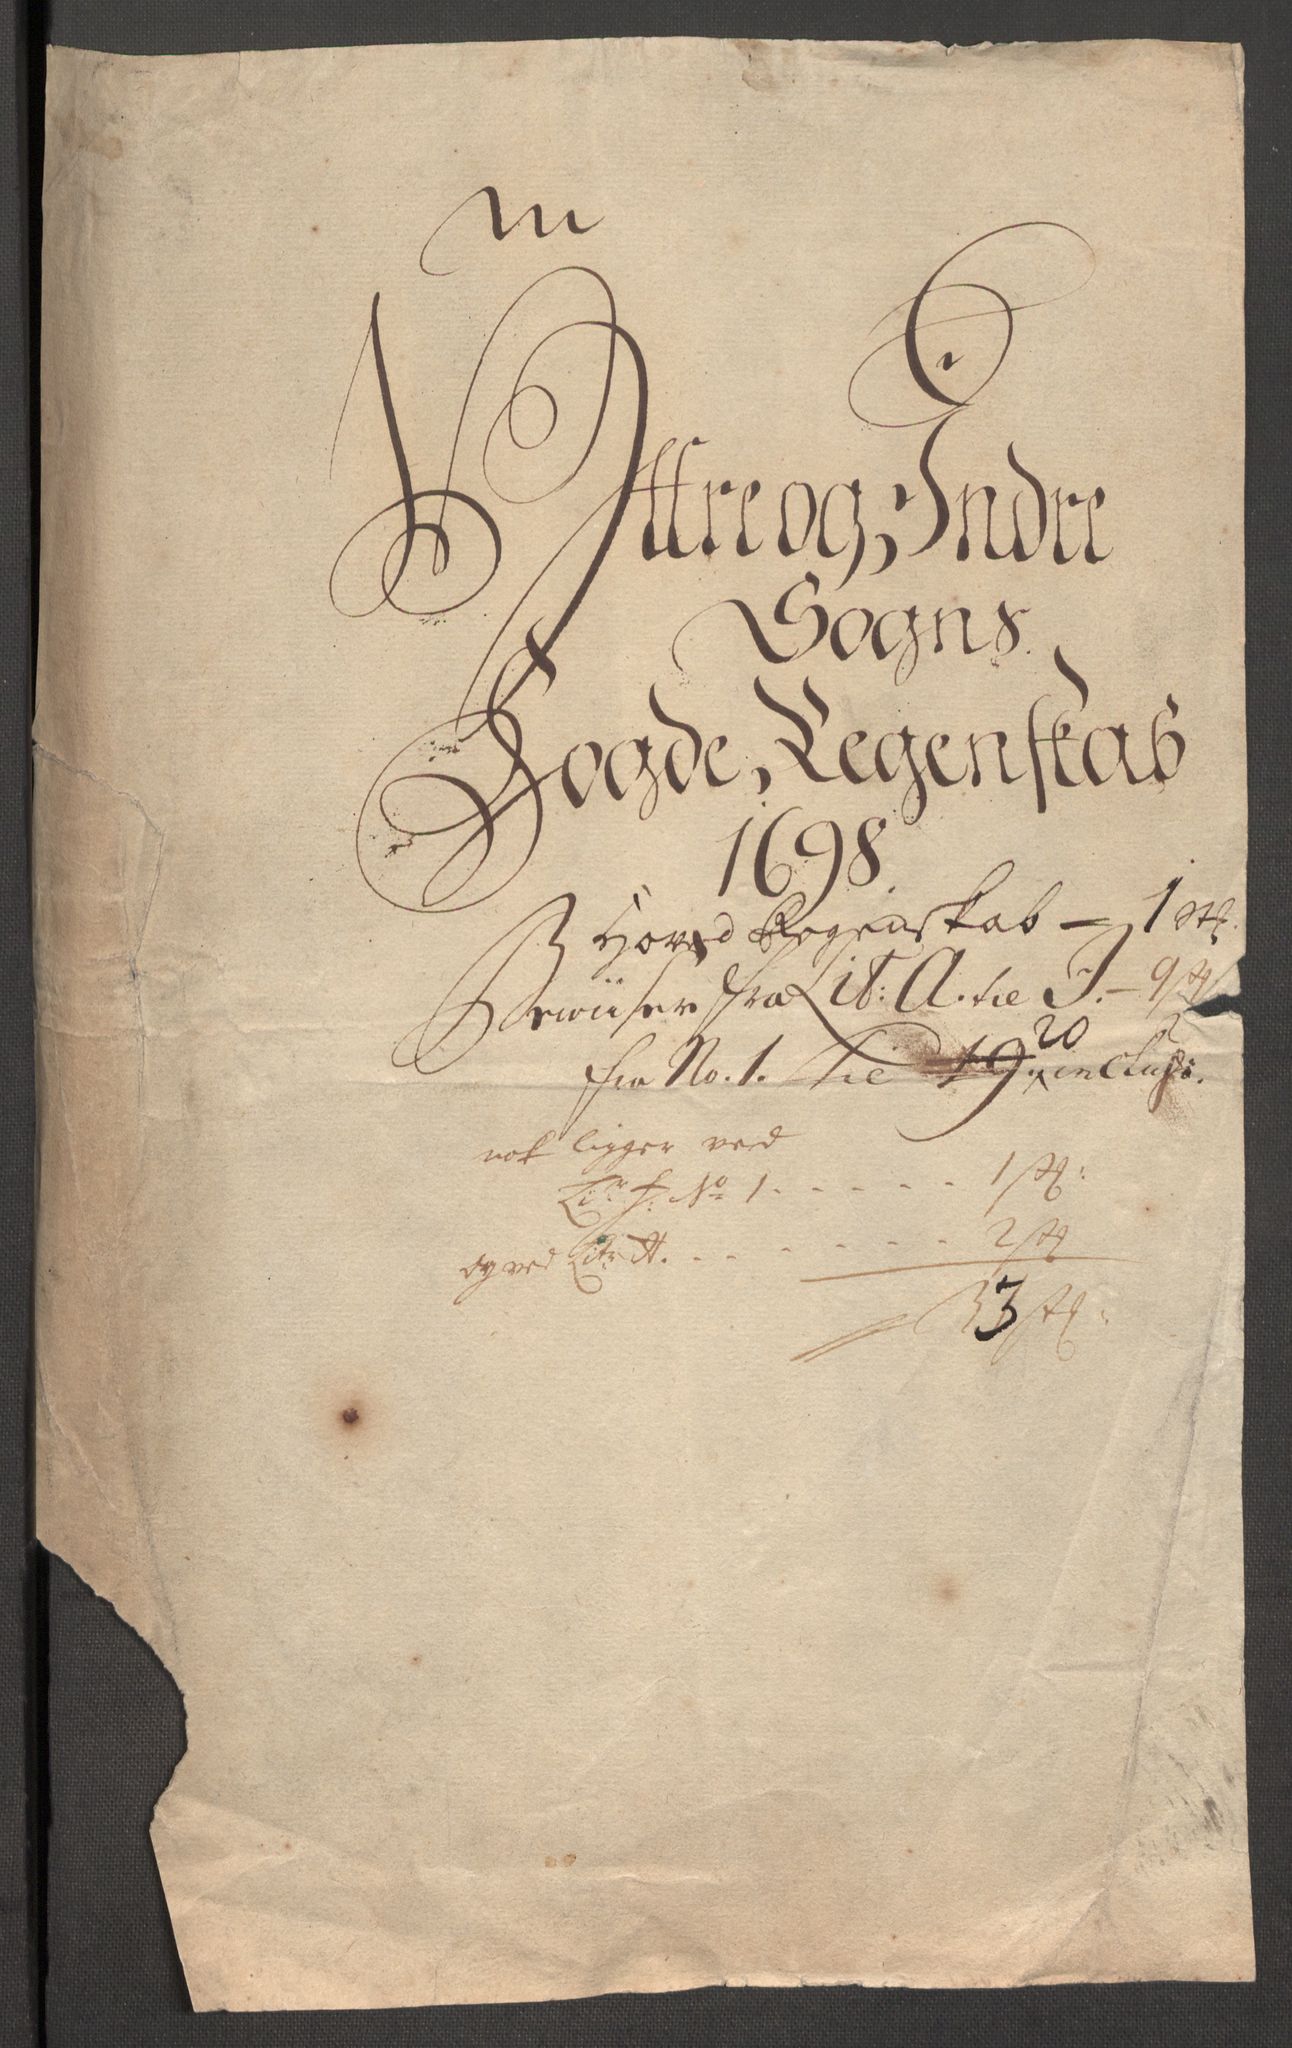 Yttre og Indre
Sogns
Fogde Regenskab
1698
Hoved Regenskab – 1 stk.
Bewiiser fra Lit: A. til J. – 9 stk
20
fra No. 1. til 19 inclusi.
nok ligger ved
Litr f: No 1. - - - - - 1 stk:
og ved Litr A. - - - - - - - 2 stk
33 stk: